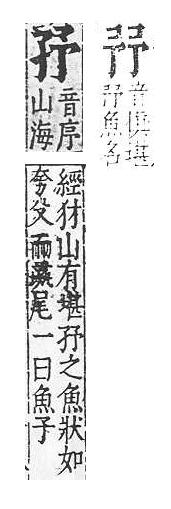 㐨
音堪
㐨魚名
㐨
音序
山海
經犲山有堪㐨之魚狀如
夸父而彘尾一曰魚子